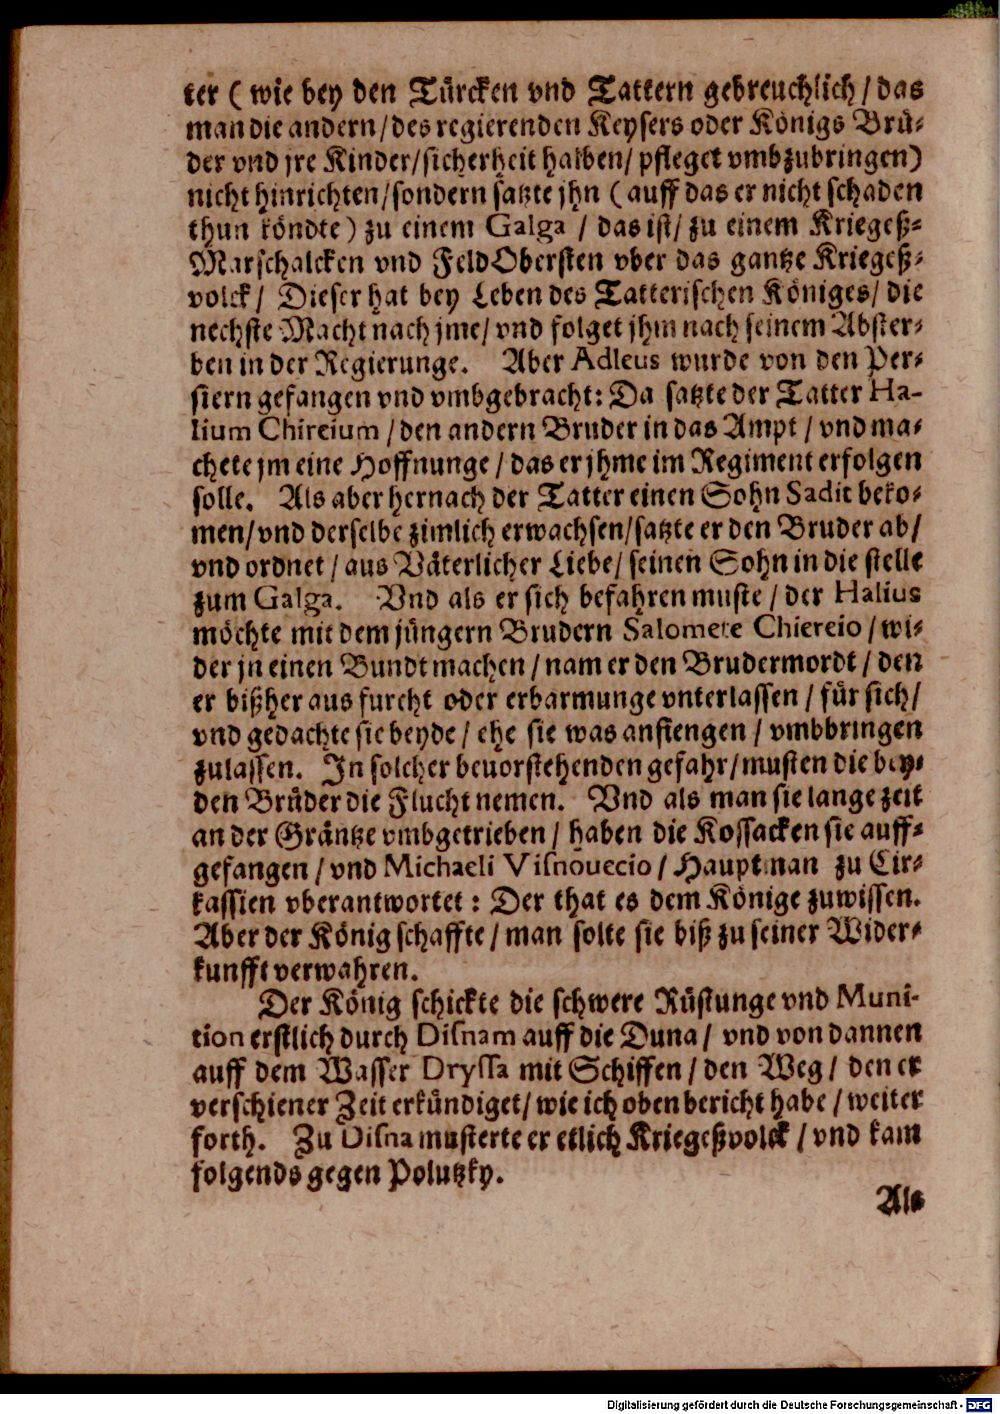 ter ( wie bey den Türcken vnd Tattern gebreuchlich / das
man die andern / des regierenden Keysers oder Königs Brü-
der vnd jre Kinder / sicherheit halben / pfleget vmbzubringen )
nicht hinrichten / sondern satzte jhn ( auff das er nicht schaden
thun köndte ) zu einem Galga / das ist / zu einem Kriegeß-
Marschalcken vnd FeldObersten vber das gantze Kriegeß-
volck / Dieser hat bey Leben des Tatterischen Königes / die
nechste Macht nach jme / vnd folget jhm nach seinem Abster-
ben in der Regierunge. Aber Adleus wurde von den Per-
siern gefangen vnd vmbgebracht : Da satzte der Tatter Ha-
lium Chireium / den andern Bruder in das Ampt / vnd ma-
chete jm eine Hoffnunge / das er jhme im Regiment erfolgen
solle. Als aber hernach der Tatter einen Sohn Sadit beko-
men / vnd derselbe zimlich erwachsen / satzte er den Bruder ab /
vnd ordnet / aus Väterlicher Liebe / seinen Sohn in die stelle
zum Galga. Vnd als er sich befahren muste / der Halius
möchte mit dem jüngern Brudern Salomete Chiereio / wi-
der jn einen Bundt machen / nam er den Brudermordt / den
er bißher aus furcht oder erbarmunge vnterlassen / für sich /
vnd gedachte sie beyde / ehe sie was anfiengen / vmbbringen
zulassen. In solcher beuorstehenden gefahr / musten die bey-
den Brüder die Flucht nemen. Vnd als man sie lange zeit
an der Gräntze vmbgetrieben / haben die Kossacken sie auff-
gefangen / vnd Michaeli Visnouecio / Hauptman zu Cir-
kassien vberantwortet : Der that es dem Könige zuwissen.
Aber der König schaffte / man solte sie biß zu seiner Wider-
kunfft verwahren.
Der König schickte die schwere Rüstunge vnd Muni-
tion erstlich durch Disnam auff die Duna / vnd von dannen
auff dem Wasser Dryssa mit Schiffen / den Weg / den er
verschiener Zeit erkündiget / wie ich oben bericht habe / weiter
forth. Zu Disna musterte er etlich Kriegeßvolck / vnd kam
folgends gegen Polutzky.
Als
Digitalisierung gefördert durch die Deutsche Forschungsgemeinschaft - DFG